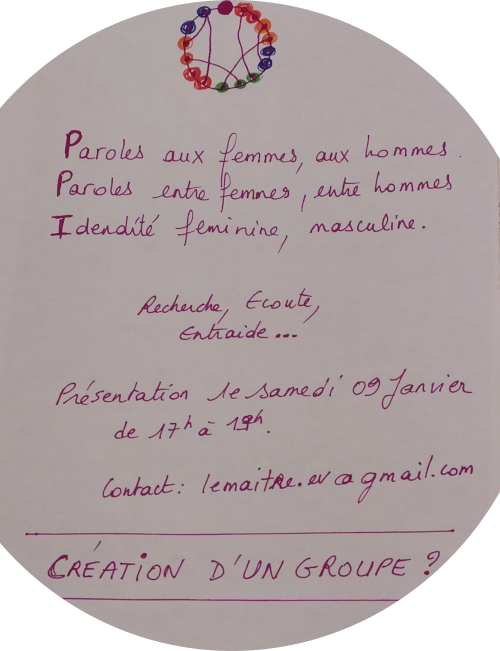 Paroles aux femmes, aux hommes.
Paroles entre femmes, entre hommes
Idendité feminine, masculine.
Recherche, Ecoute,
Entraide...
Présentation le samedi 09 Janvier
de 17h à 19h.
Contact: lemaitre.ev@gmail.com
CRÉATION D'UN GROUPE ?